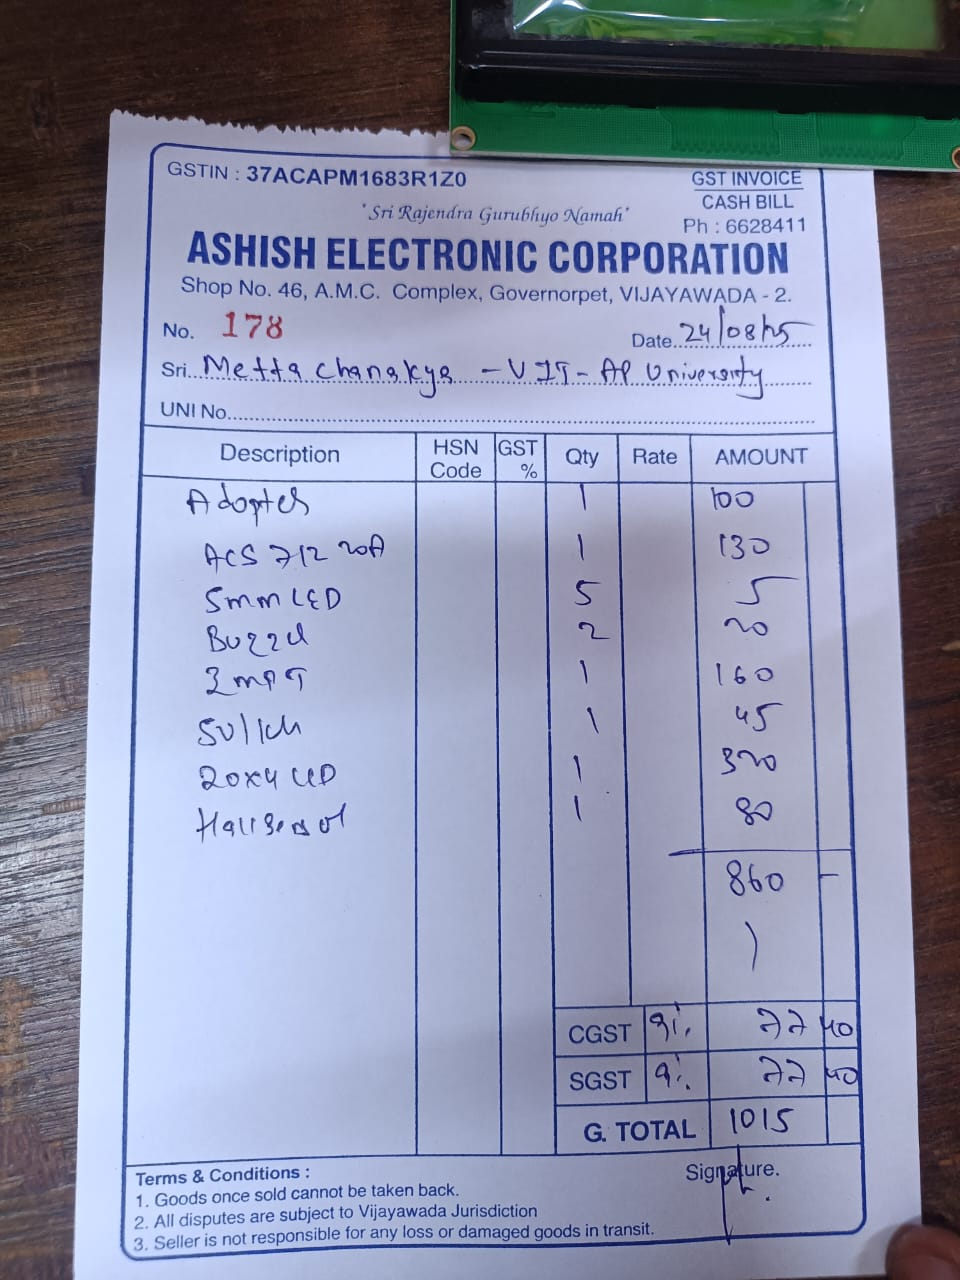 GSTIN : 37ACAPM1683R1Z0
GST INVOICE
CASH BILL
Ph : 6628411
"Sri Rajendra Gurubhyo Namah"
ASHISH ELECTRONIC CORPORATION
Shop No. 46, A.M.C. Complex, Governorpet, VIJAYAWADA - 2.
No. 178 Date 24/08/25
Sri. Metta chanakya - VIT - AP University
UNI No.
Description HSN Code GST % Qty Rate AMOUNT
Adopter 1 100
ACS 712 20A 1 130
5mm LED 5 5
Buzzer 2 20
ZMPT 1 160
5V/1ch 1 45
20x4 LCD 1 320
Hallsensor 1 80
860 -
CGST 9% 77 40
SGST 9% 77 40
G. TOTAL 1015
Terms & Conditions :
Signature.
1. Goods once sold cannot be taken back.
2. All disputes are subject to Vijayawada Jurisdiction
3. Seller is not responsible for any loss or damaged goods in transit.